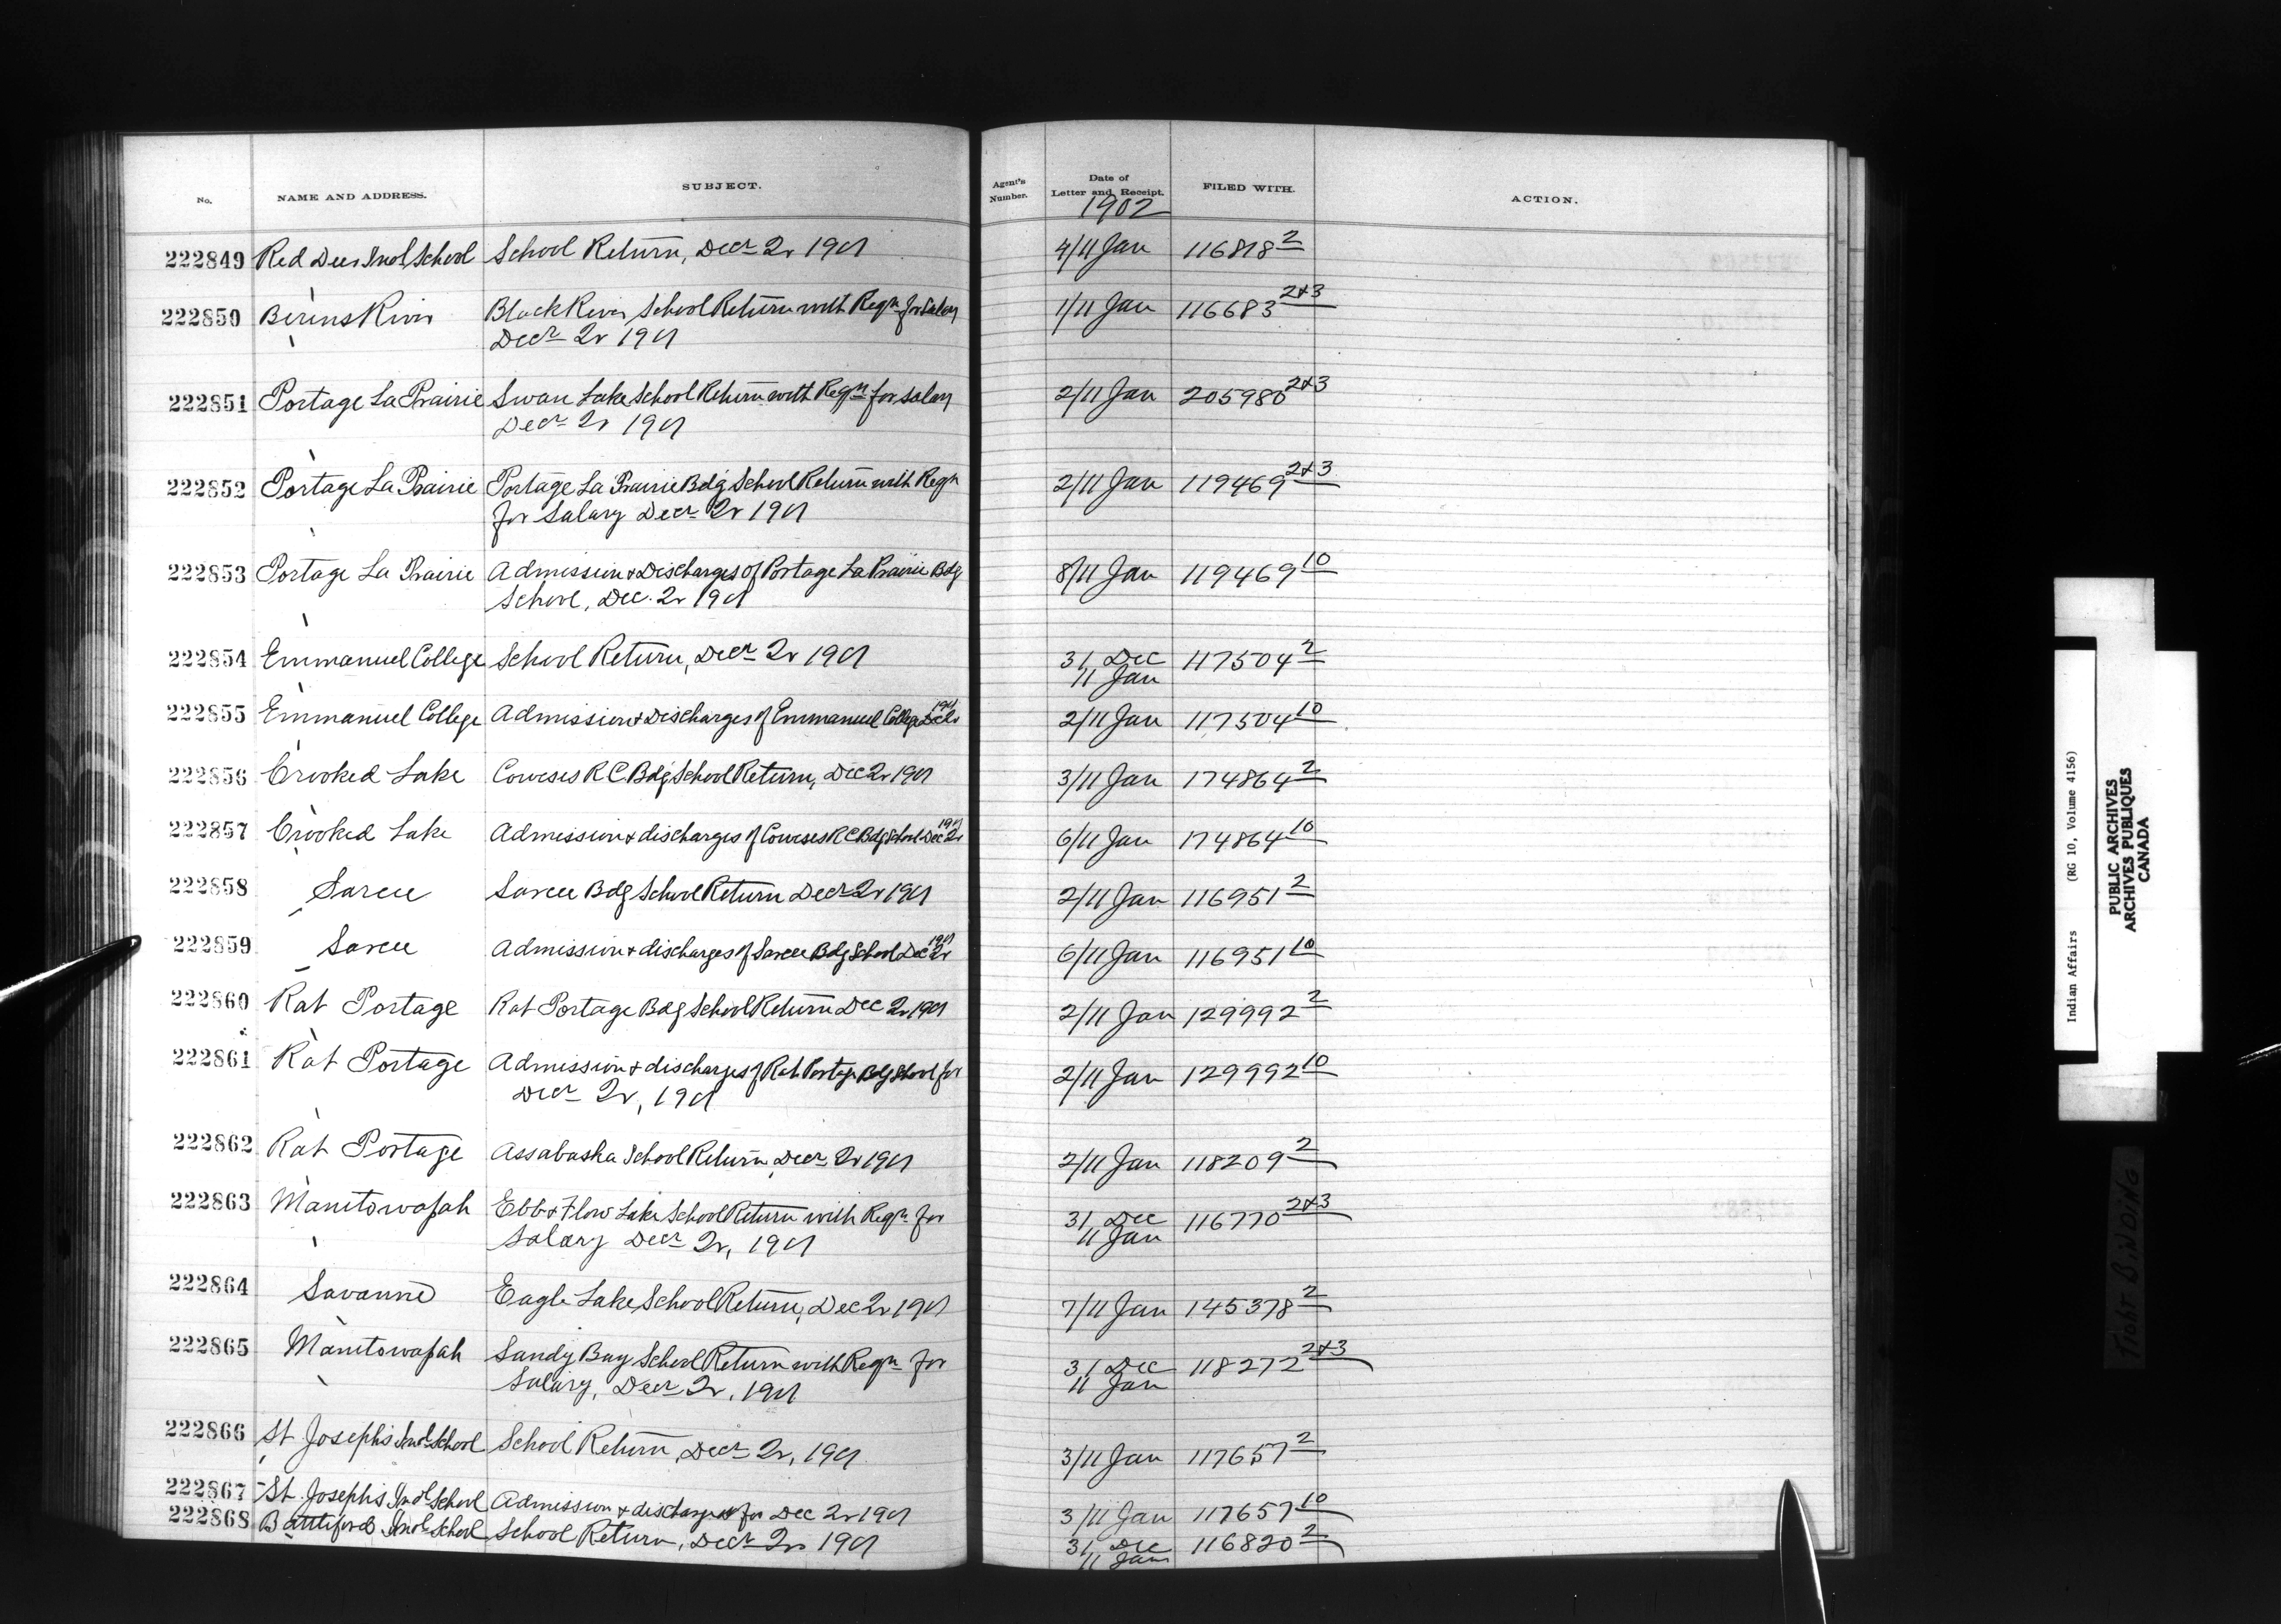 No. NAME AND ADDRESS. SUBJECT. Agent's Number. Date of Letter and Receipt. FILED WITH. ACTION.
1902
222849 Red Deer Indl School School Return, Decr 2r 1901 4/11 Jan 116818 2
222850 Berens River Black River School Return with Reqn for Salary 1/11 Jan 116683 2&3
Decr 2r 1901
222851 Portage La Prairie Swan Lake School Return with Reqn for salary 2/11 Jan 205980 2&3
Decr 2r 1901
222852 Portage La Prairie Portage La Prairie Bdg School Return with Reqn 2/11 Jan 119469 2&3
for Salary Decr 2r 1901
222853 Portage La Prairie Admission & Discharges of Portage La Prairie Bdg 8/11 Jan 119469 10
School, Dec. 2r 1901
222854 Emmanuel College School Return, Decr 2r 1901 31 Dec 117504 2
11 Jan
222855 Emmanuel College Admission & Discharges of Emmanuel College Dec 2r 1901 2/11 Jan 117504 10
222856 Crooked Lake Coweses R C Bdg School Return, Dec 2r 1901 3/11 Jan 174864 2
222857 Crooked Lake Admission & discharges of Coweses R C Bdg School Dec 2r 1901 6/11 Jan 174864 10
222858 Sarcee Sarcee Bdg School Return Decr 2r 1901 2/11 Jan 116951 2
222859 Sarcee Admission & discharges of Sarcee Bdg School Dec 2r 1901 6/11 Jan 116951 10
222860 Rat Portage Rat Portage Bdg School Return Dec 2r 1901 2/11 Jan 129992 2
222861 Rat Portage Admission & discharges of Rat Portage Bdg School for 2/11 Jan 129992 10
Decr 2r, 1901
222862 Rat Portage Assabaska School Return, Decr 2r 1901 2/11 Jan 118209 2
222863 Manitowapah Ebb & Flow Lake School Return with Reqn for 31 Dec 116770 2&3
Salary Decr 2r, 1901 11 Jan
222864 Savanne Eagle Lake School Return, Dec 2r 1901 7/11 Jan 145378 2
222865 Manitowapah Sandy Bay School Return with Reqn for 31 Dec 118272 2&3
Salary, Decr 2r, 1901 11 Jan
222866 St Josephs Indl School School Return, Decr 2r, 1901 3/11 Jan 117657 2
222867 St. Josephs Indl School Admission & discharges for Dec 2r 1901 3/11 Jan 117657 10
222868 Battleford Indl School School Return, Decr 2r 1901 31 Dec 116820 2
11 Jan
Indian Affairs (RG 10, Volume 4156)
PUBLIC ARCHIVES
ARCHIVES PUBLIQUES
CANADA
TIGHT BINDING